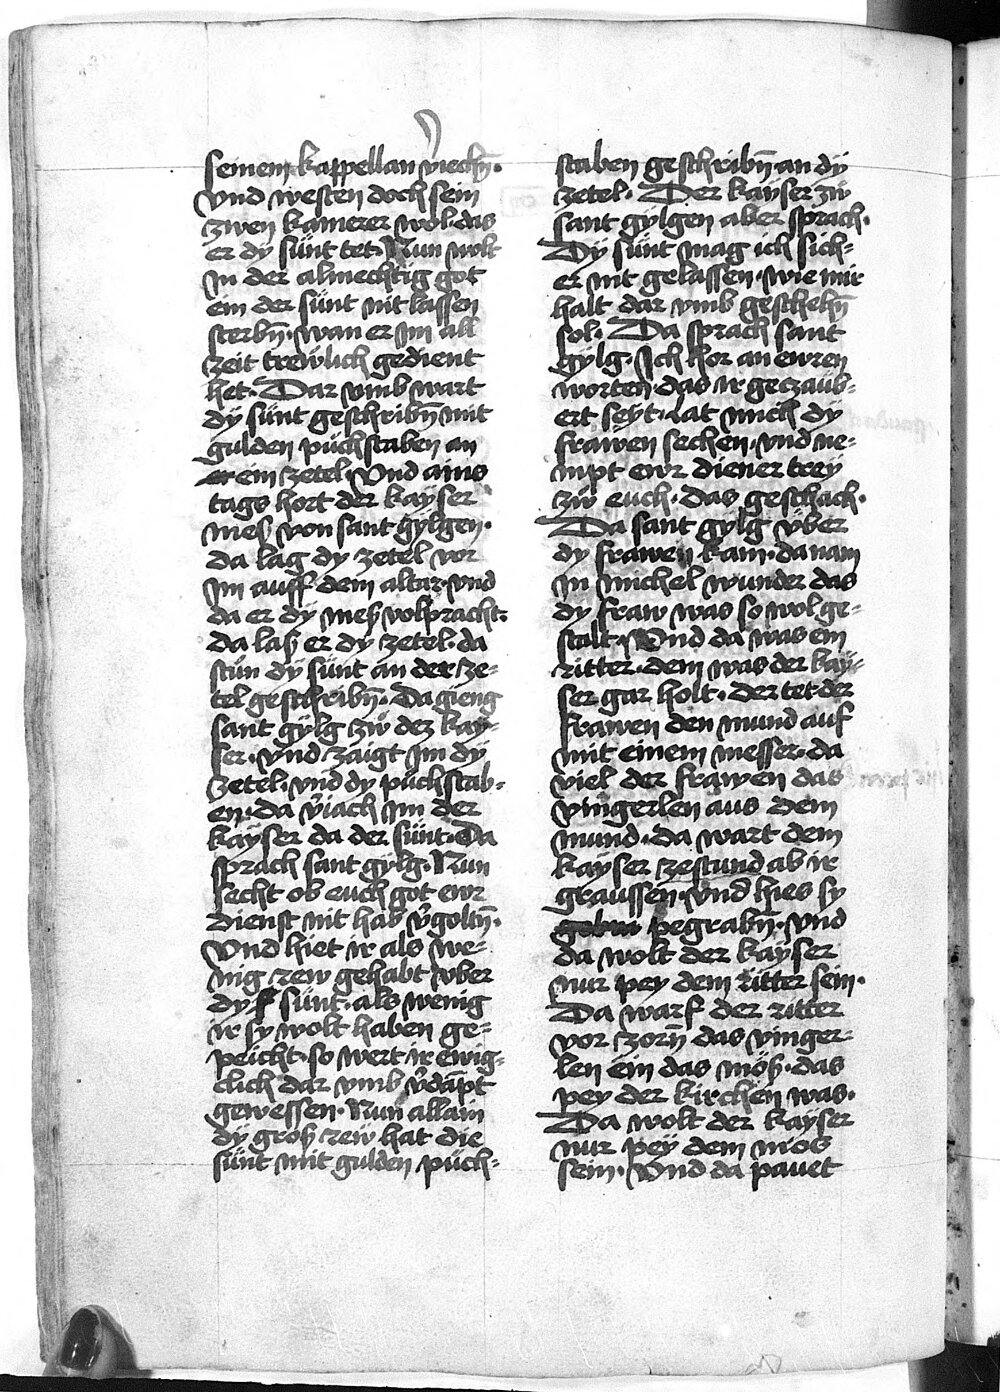 seinem kappellan v̄iechn̄.
vnd westen doch sein
zwen kamerer wol das
er dÿ sünt tet. Nun wolt
in der almechtig got
ein der sünt nit lassen
sterbn̄. wan er im all
zeit trewlich gedient
het. Dar vmb wart
dÿ sünt geschribn̄ mit
gulden püchstaben an
er ein zetel. Vnd ains
tags hort der kayser
meß von sant gÿlgen.
da lag dÿ zetel vor
im auff dem altar. vnd
da er dÿ meß volpracht.
da laß er dÿ zetel. da
stün dÿ sünt an der ze-
tel geschribn̄. Da gieng
sant gÿlg zü dez kaÿ-
ser. vnd zaigt im dÿ
zetel. vnd dÿ püchstab-
en. da v̄iach im der
kayser da der sünt. Da
sprach sant gÿlg. Nun
secht ob euch got ewr
dienst nit hab v̄goltn̄.
Vnd hiet ir als we-
nig rew gehabt vber
dÿ sünt. als wenig
ir sy wolt haben ge-
peicht. so wert ir ewig-
clich dar vmb v̄dāpt
gewessen. Nun allain
dÿ groß rew hat die
sünt mit gulden püch-
staben geschribn̄ an dÿ
zetel. Der kayser zü
sant gÿlgen aber sprach.
Dÿ sünt mag ich sich-
er nit gelassen. wie mir
halt dar vmb geschehn̄
sol. Da sprach sant
gÿlg. Ich hor an ewren
worten. das ir geczaub-
ert seÿt. Lat mich dÿ
frawen sechen. vnd ne-
mpt ewr diener trey
zü euch. das geschach.
Da sant gÿlg vber
dÿ frawen kam. da nam
in michel wunder das
dÿ fraw was so wol ge-
stalt. Vnd da was ein
ritter. dem was der kaÿ-
ser gar holt. der tet der
frawen den mund auf
mit einem messer. da
viel der frawen das
vingerlen aus dem
mund. da wart dem
kayser zestund ab ir
graussen. vnd hies sy
pegrabn̄. vnd
da wolt der kayser
nur pey dem ritter sein.
Da warf der ritter
vor zorn̄ das vinger-
len ein das möß. das
pey der kirchen was.
Da wolt der kayser
nur peÿ dem mos
sein. Vnd da pauet